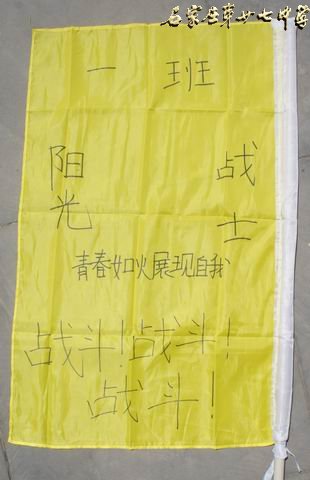 石家庄第廿七中学
一 班
阳光 战士
青春如火展现自我
战斗！战斗！
战斗！